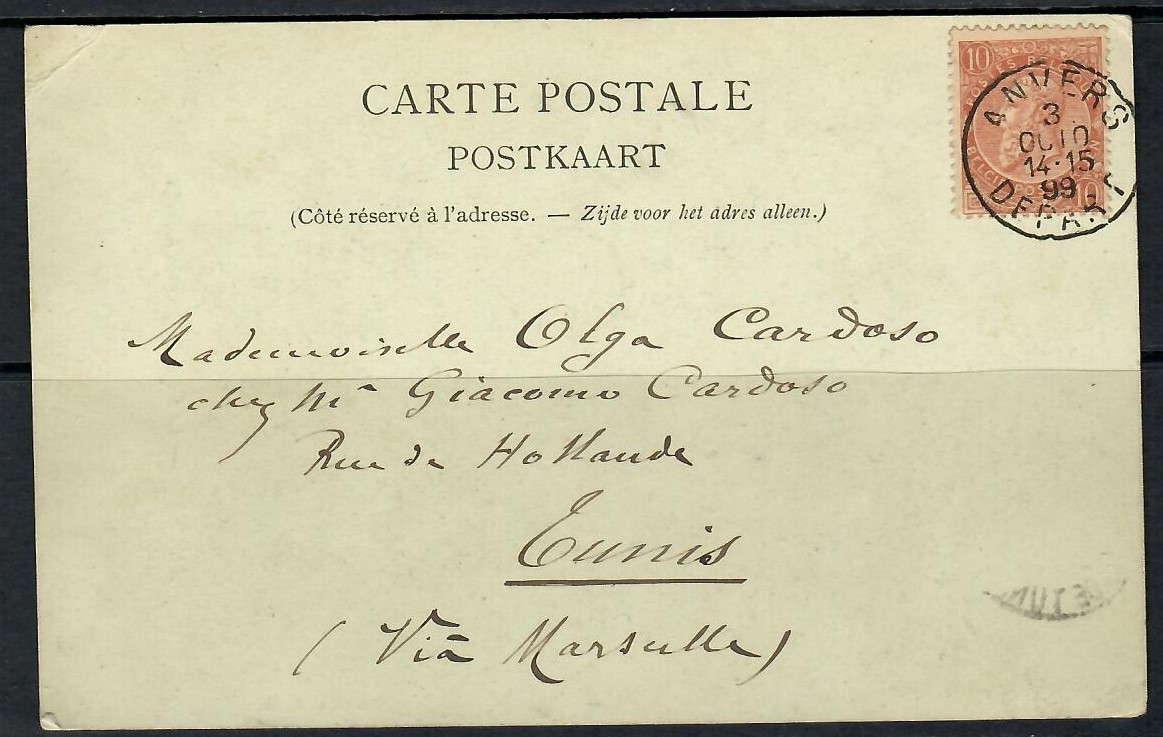 CARTE POSTALE
POSTKAART
(Côté réservé à l'adresse. — Zijde voor het adres alleen.)
10 10
POSTES BELGIQUE
BELGIË POSTERIJEN
ANVERS
3
OCTO
14-15
99
DEPART
Mademoiselle Olga Cardoso
chez Mr Giacomo Cardoso
Rue de Hollande
Tunis
(Via Marseille)